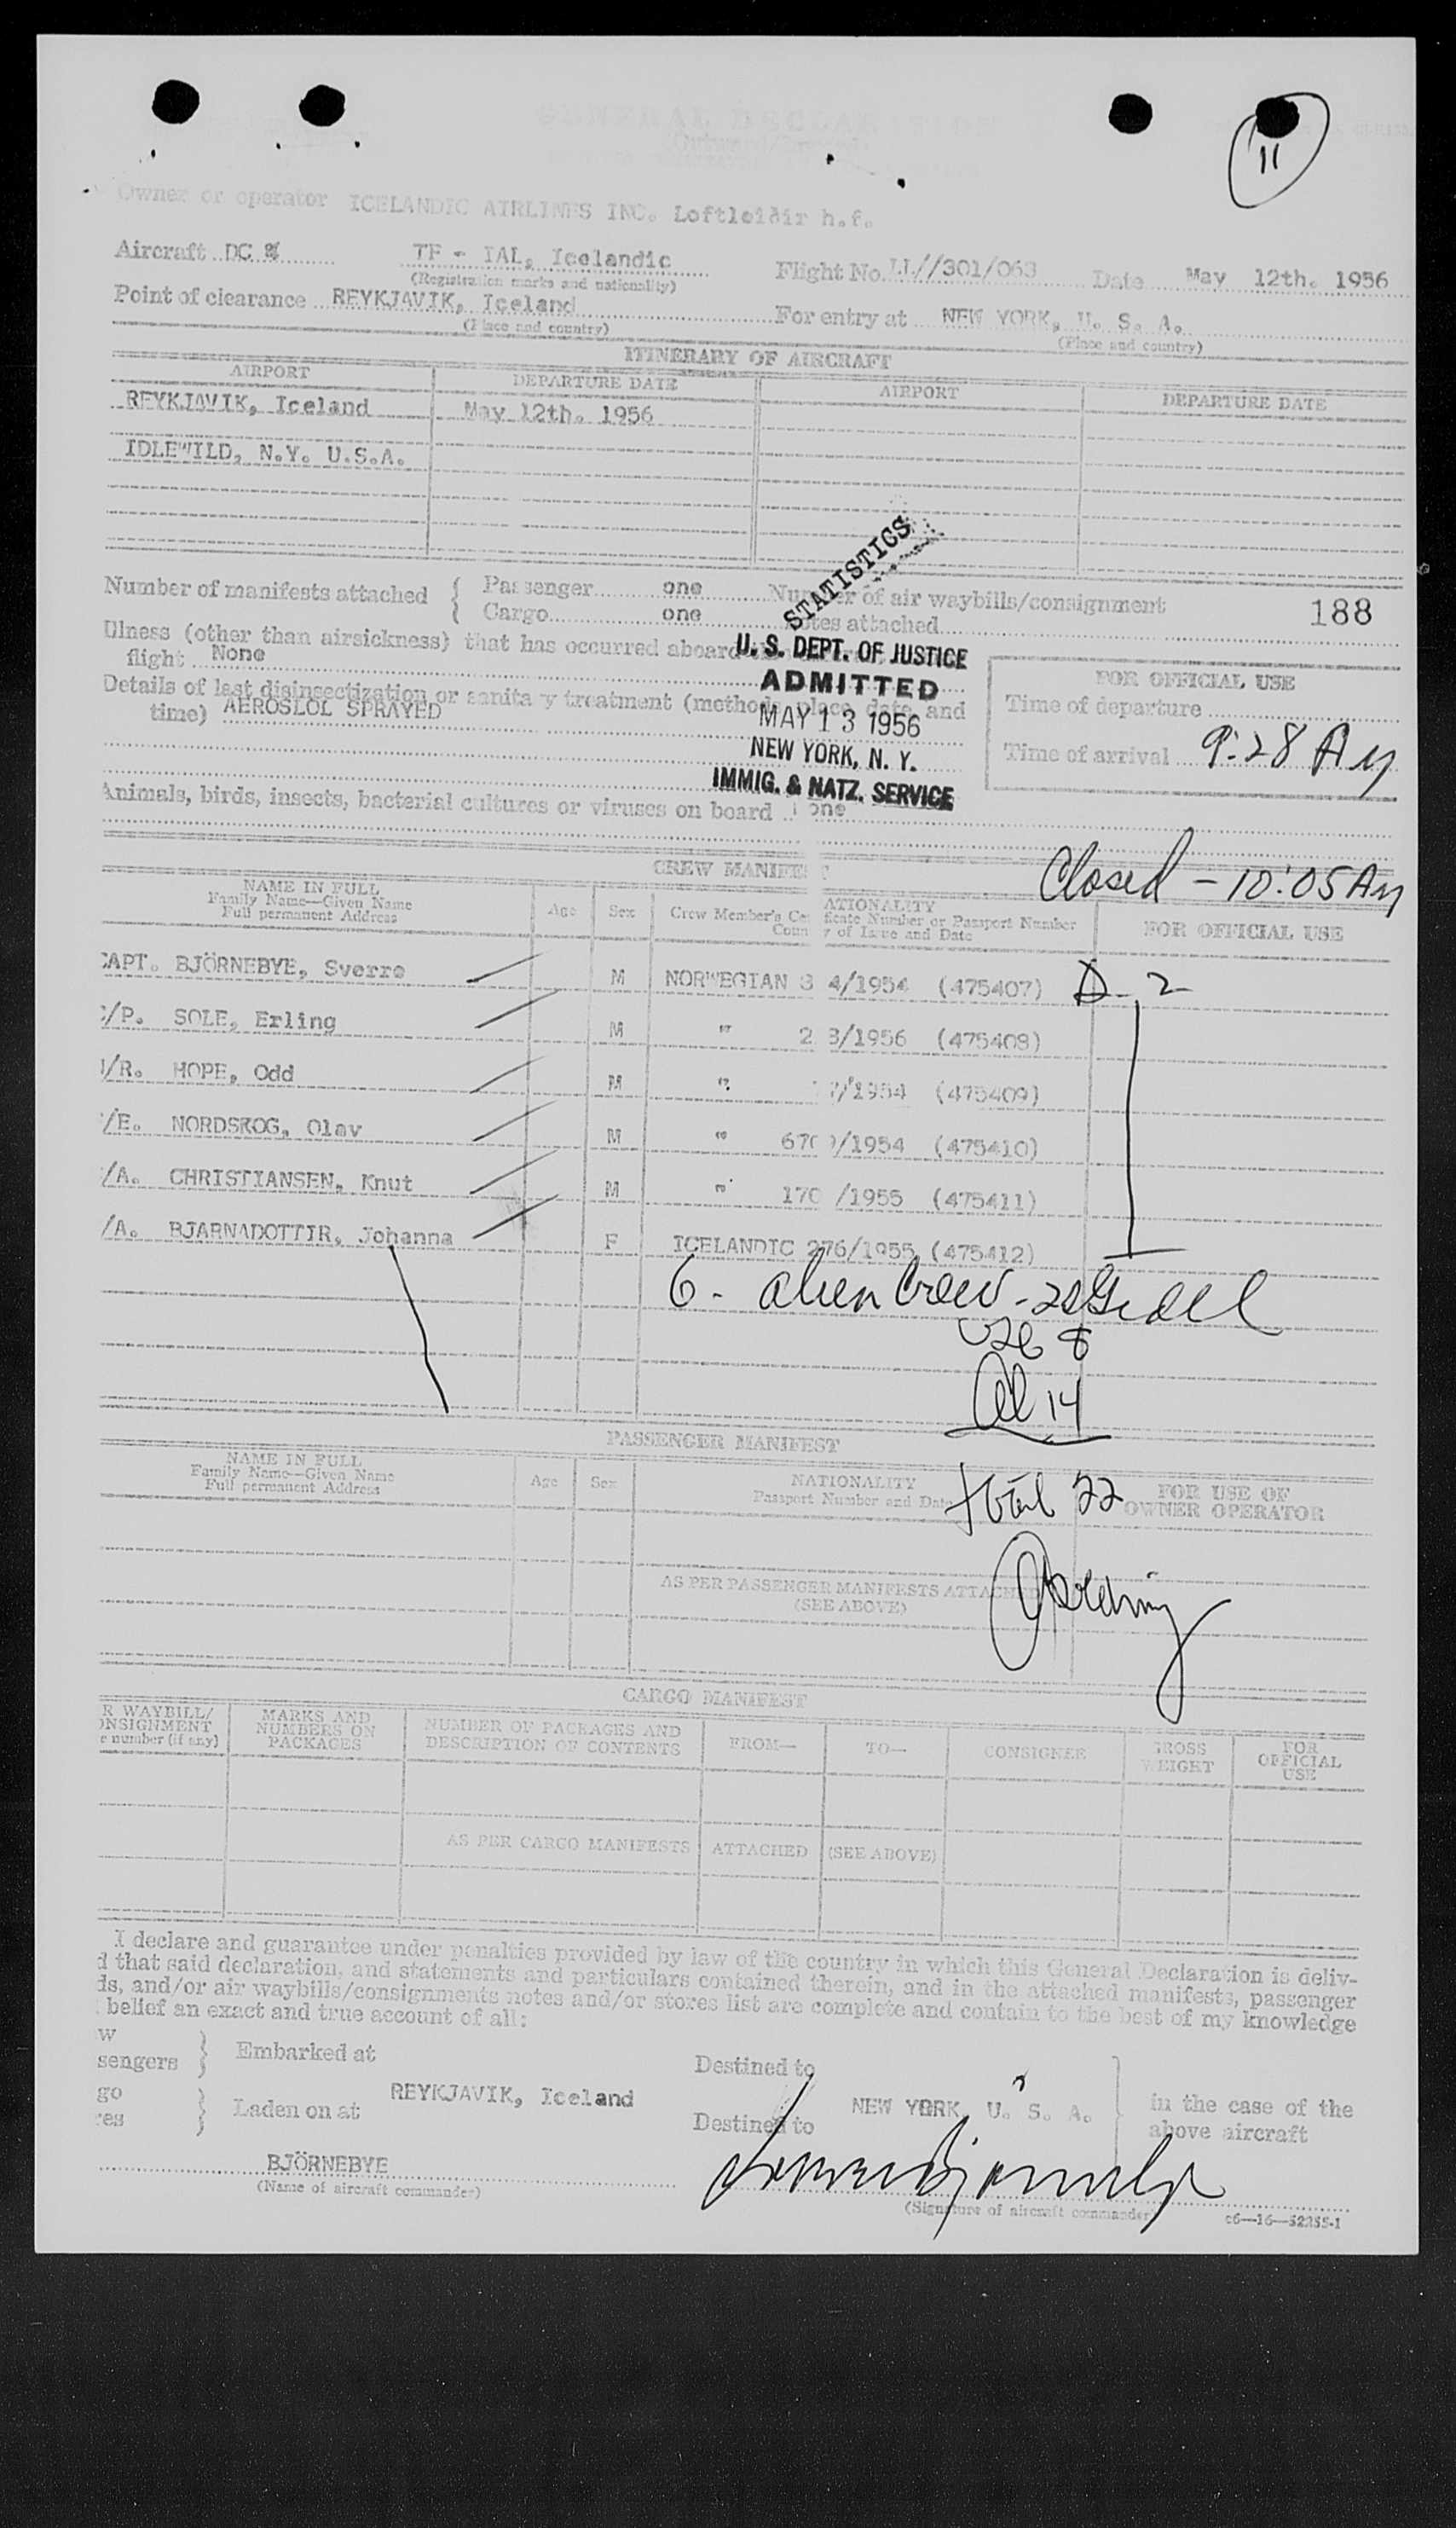 GENERAL DECLARATION
11
Owner or operator ICELANDIC AIRLINES INC. Loftleiðir h.f.
Aircraft DC TF - IAL, Icelandic Flight No. LL//301/063 Date May 12th. 1956
(Registration marks and nationality)
Point of clearance REYKJAVIK, Iceland For entry at NEW YORK, U. S. A.
(Place and country) (Place and country)
ITINERARY OF AIRCRAFT
AIRPORT DEPARTURE DATE AIRPORT DEPARTURE DATE
REYKJAVIK, Iceland May 12th. 1956
IDLEWILD, N.Y. U.S.A.
STATISTICS
Number of manifests attached { Passenger one Number of air waybills/consignment 188
Cargo one notes attached
Illness (other than airsickness) that has occurred aboard
flight None
U. S. DEPT. OF JUSTICE
ADMITTED
MAY 13 1956
NEW YORK, N. Y.
IMMIG. & NATZ. SERVICE
Details of last disinsectization or sanita y treatment (method, place, date and
time) AEROSLOL SPRAYED
FOR OFFICIAL USE
Time of departure
Time of arrival 9:28 AM
Animals, birds, insects, bacterial cultures or viruses on board one
Closed - 10:05 AM
CREW MANIFEST
NAME IN FULL
Family Name—Given Name
Full permanent Address
Age Sex
ATIONALITY
Crew Member's Ce ficate Number or Passport Number
Coun y of Issue and Date
FOR OFFICIAL USE
CAPT. BJÖRNEBYE, Sverre M NORWEGIAN 3 4/1954 (475407) D-2
/P. SOLE, Erling M " 2 3/1956 (475408)
/R. HOPE, Odd M " 7/1954 (475409)
/E. NORDSKOG, Olav M " 670 /1954 (475410)
/A. CHRISTIANSEN, Knut M " 170 /1955 (475411)
/A. BJARNADOTTIR, Johanna F ICELANDIC 276/1955 (475412)
6 - alien Crew -
USC 8
Al 14
PASSENGER MANIFEST
NAME IN FULL
Family Name—Given Name
Full permanent Address
Age Sex
NATIONALITY
Passport Number and Date
total 22
FOR USE OF
OWNER OPERATOR
AS PER PASSENGER MANIFESTS ATTACHED
(SEE ABOVE)
CARGO MANIFEST
R WAYBILL/
ONSIGNMENT
e number (if any)
MARKS AND
NUMBERS ON
PACKAGES
NUMBER OF PACKAGES AND
DESCRIPTION OF CONTENTS
FROM— TO— CONSIGNEE
GROSS
WEIGHT
FOR
OFFICIAL
USE
AS PER CARGO MANIFESTS ATTACHED (SEE ABOVE)
I declare and guarantee under penalties provided by law of the country in which this General Declaration is deliv-
d that said declaration, and statements and particulars contained therein, and in the attached manifests, passenger
ds, and/or air waybills/consignments notes and/or stores list are complete and contain to the best of my knowledge
belief an exact and true account of all:
w
sengers } Embarked at Destined to
REYKJAVIK, Iceland NEW YORK, U. S. A.
go
res } Laden on at Destined to
} in the case of the
above aircraft
BJÖRNEBYE
(Name of aircraft commander)
(Signature of aircraft commander)
c6—16—52255-1